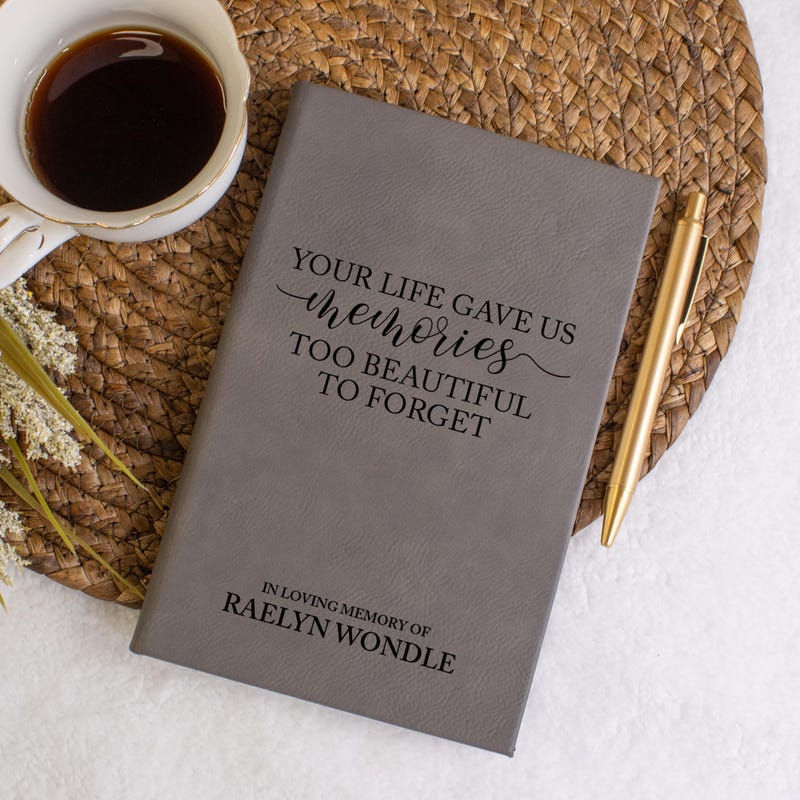 YOUR LIFE GAVE US
memories
TOO BEAUTIFUL
TO FORGET
IN LOVING MEMORY OF
RAELYN WONDLE